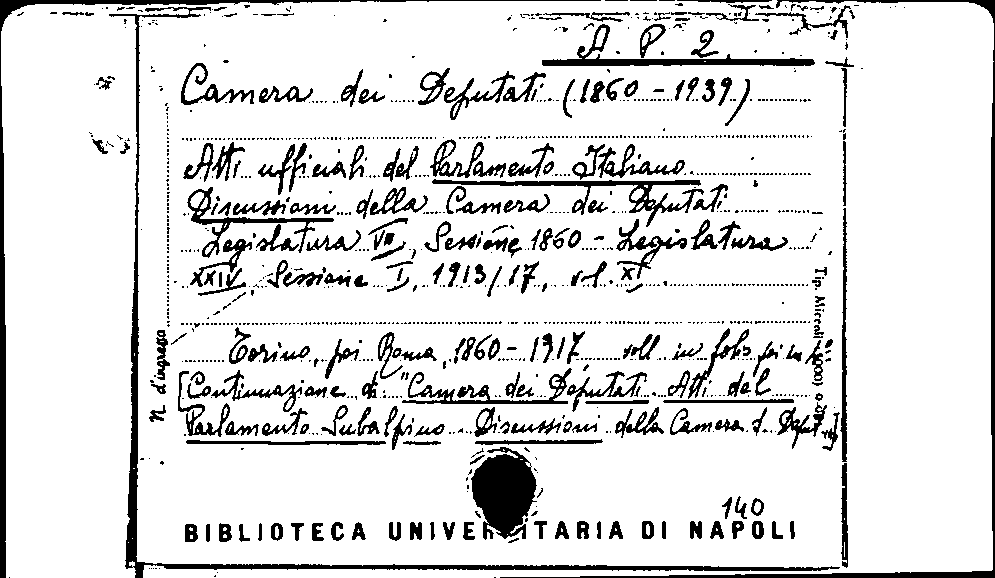 A. P. 2.
Camera dei Deputati (1860 - 1939)
Atti ufficiali del Parlamento Italiano.
Discussioni della Camera dei Deputati
Legislatura VII, Sessione 1860 - Legislatura
XXIV, Sessione I, 1913/17, vol. XI.
Torino, poi Roma, 1860 - 1917, voll. in folio poi in
[Continuazione di: "Camera dei Deputati. Atti del
Parlamento Subalpino. Discussioni della Camera d. Deput.
N. d'ingresso
Tip. Miccoli
140
BIBLIOTECA UNIVERSITARIA DI NAPOLI